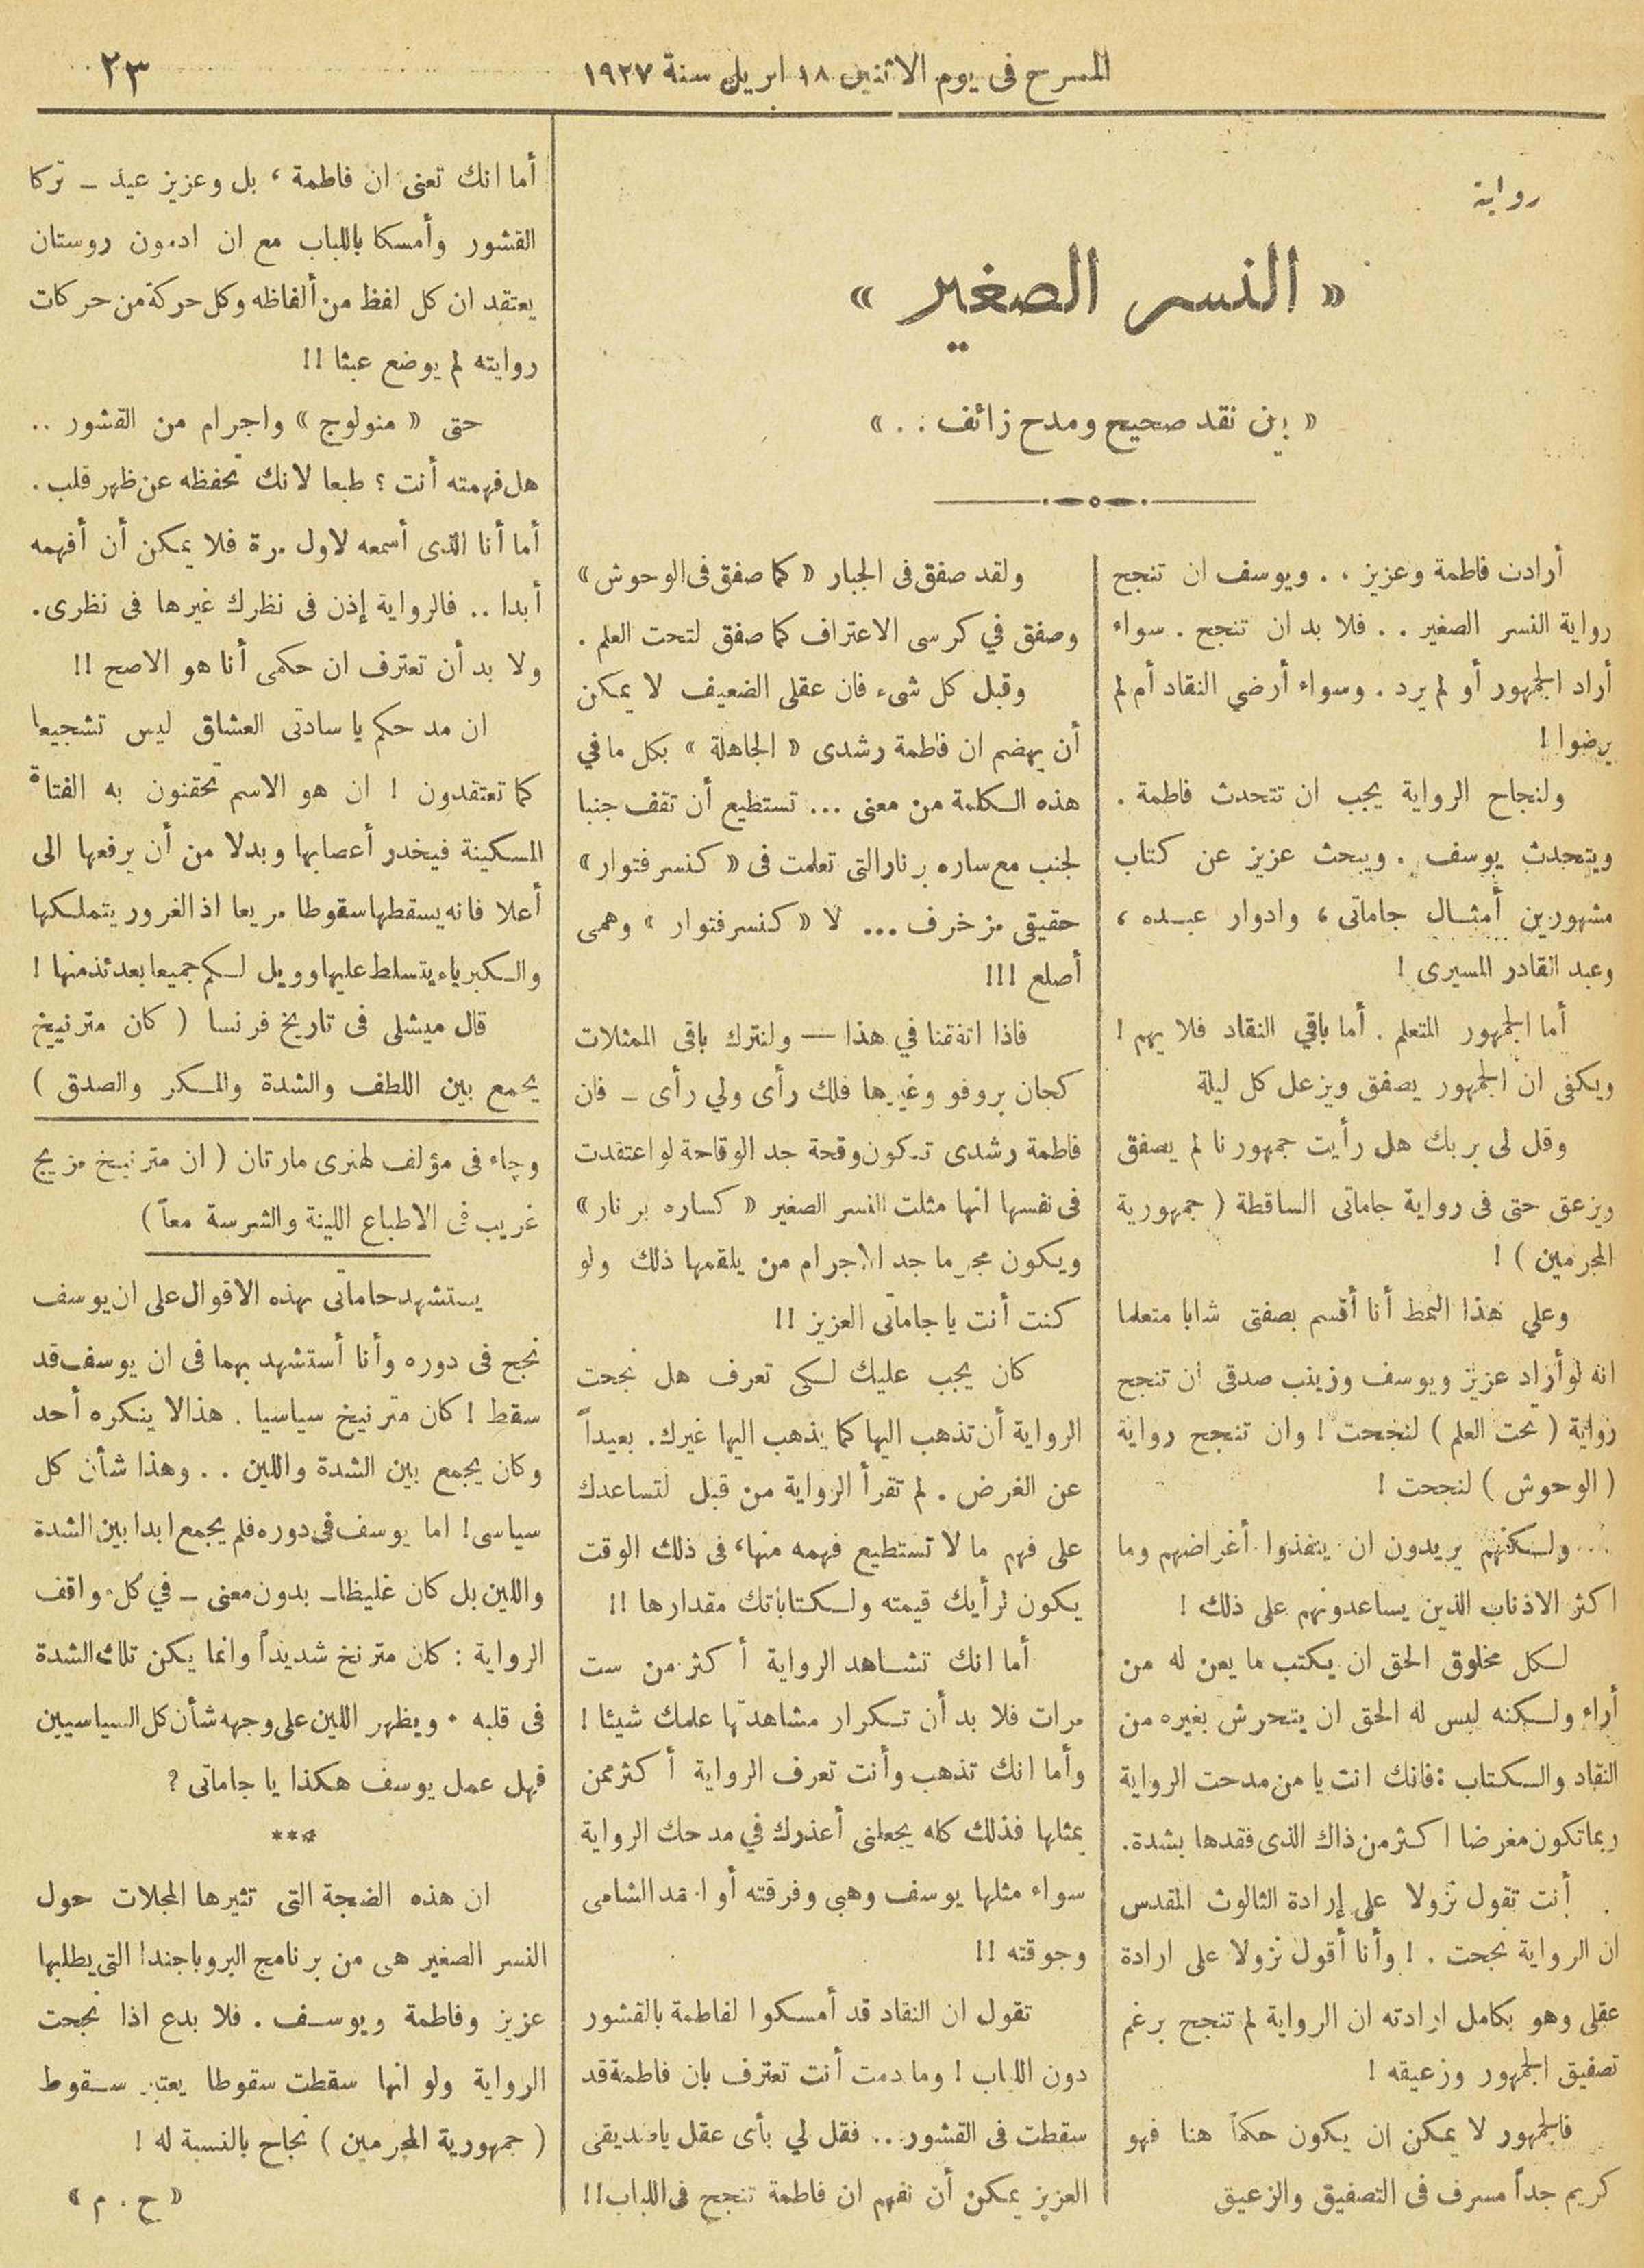 المسرح فى يوم الاثنين ١٨ ابريل سنة ١٩٢٧
٢٣
رواية
« النسر الصغير »
« بين نقد صحيح ومدح زائف . . »
أرادت فاطمة وعزيز . . ويوسف ان تنجح
رواية النسر الصغير . . فلا بد ان تنجح . سواء
أراد الجمهور أو لم يرد . وسواء أرضي النقاد أم لم
يرضوا !
ولنجاح الرواية يجب ان تتحدث فاطمة .
ويتحدث يوسف . ويبحث عزيز عن كتاب
مشهورين أمثال جاماتى ، وادوار عبده ،
وعبد القادر المسيرى !
أما الجمهور المتعلم . أما باقي النقاد فلا يهم !
ويكفى ان الجمهور يصفق ويزعل كل ليلة
وقل لى بربك هل رأيت جمهورنا لم يصفق
ويزعق حتى فى رواية جاماتى الساقطة ( جمهورية
المجرمين ) !
وعلي هذا النمط أنا أقسم بصفتى شابا متعلما
انه لو أراد عزيز ويوسف وزينب صدقى ان تنجح
رواية ( تحت العلم ) لنجحت ! وان تنجح رواية
( الوحوش ) لنجحت !
ولكنهم يريدون ان ينفذوا أغراضهم وما
اكثر الاذناب الذين يساعدونهم على ذلك !
لكل مخلوق الحق ان يكتب ما يعن له من
أراء ولكنه ليس له الحق ان يتحرش بغيره من
النقاد والكتاب : فانك انت يا من مدحت الرواية
ربما تكون مغرضا اكثر من ذاك الذى فقدها بشدة .
أنت تقول نزولا على إرادة الثالوث المقدس
ان الرواية نجحت . ! وأنا أقول نزولا على ارادة
عقلى وهو بكامل ارادته ان الرواية لم تنجح برغم
تصفيق الجمهور وزعيقه !
فالجمهور لا يمكن ان يكون حكماً هنا فهو
كريم جداً مسرف فى التصفيق والزعيق
ولقد صفق فى الجبار « كما صفق فى الوحوش »
وصفق في كرسى الاعتراف كما صفق لتحت العلم .
وقبل كل شىء فان عقلى الضعيف لا يمكن
أن يهضم ان فاطمة رشدى « الجاهلة » بكل ما في
هذه الكلمة من معنى ... تستطيع أن تقف جنبا
لجنب مع ساره برنار التى تعلمت فى « كنسرفتوار »
حقيقى مزخرف ... لا « كنسرفتوار » وهمى
أصلع !!!
فاذا اتفقنا في هذا — ولنترك باقى الممثلات
كجان بروفو وغيرها فلك رأى ولي رأى – فان
فاطمة رشدى تكون وقحة جد الوقاحة لو اعتقدت
فى نفسها انها مثلت النسر الصغير « كساره برنار »
ويكون مجرما جد الاجرام من يلقمها ذلك ولو
كنت أنت يا جاماتى العزيز !!
كان يجب عليك لكى تعرف هل نجحت
الرواية أن تذهب اليها كما يذهب اليها غيرك . بعيداً
عن الغرض . لم تقرأ الرواية من قبل لتساعدك
على فهم ما لا تستطيع فهمه منها ، فى ذلك الوقت
يكون لرأيك قيمته ولكتاباتك مقدارها !!
أما انك تشاهد الرواية أكثر من ست
مرات فلا بد أن تكرار مشاهدتها علمك شيئا !
وأما انك تذهب وأنت تعرف الرواية أكثر ممن
يمثلها فذلك كله يجعلنى أعذرك في مدحك الرواية
سواء مثلها يوسف وهبي وفرقته أو احمد الشامى
وجوقته !!
تقول ان النقاد قد أمسكوا لفاطمة بالقشور
دون اللباب ! وما دمت أنت تعترف بان فاطمة قد
سقطت فى القشور .. فقل لي بأى عقل ياصديقى
العزيز يمكن أن نفهم ان فاطمة تنجح فى اللباب !!
أما انك تعنى ان فاطمة ، بل وعزيز عيد – تركا
القشور وأمسكا باللباب مع ان ادمون روستان
يعتقد ان كل لفظ من ألفاظه وكل حركة من حركات
روايته لم يوضع عبثا !!
حتى « منولوج » واجرام من القشور ..
هل فهمته أنت ؟ طبعا لانك تحفظه عن ظهر قلب .
أما أنا الذى أسمعه لاول مرة فلا يمكن أن أفهمه
أبدا .. فالرواية إذن فى نظرك غيرها فى نظرى .
ولا بد أن تعترف ان حكمى أنا هو الاصح !!
ان مدحكم يا سادتى العشاق ليس تشجيعا
كما تعتقدون ! ان هو الاسم تحقنون به الفتاة
المسكينة فيخدر أعصابها وبدلا من أن يرفعها الى
أعلا فانه يسقطها سقوطا مريعا اذ الغرور يتملكها
والكبرياء يتسلط عليها وويل لكم جميعا بعدئذ منها !
قال ميشلى فى تاريخ فرنسا ( كان مترنيخ
يجمع بين اللطف والشدة والمكر والصدق )
وجاء فى مؤلف لهنرى مارتان ( ان مترنيخ مزيج
غريب فى الاطباع اللينة والشرسة معاً )
يستشهد جاماتى بهذه الاقوال على ان يوسف
نجح فى دوره وأنا أستشهد بهما فى ان يوسف قد
سقط ! كان مترنيخ سياسيا . هذا لا ينكره أحد
وكان يجمع بين الشدة واللين . . وهذا شأن كل
سياسى ! اما يوسف فى دوره فلم يجمع ابدا بين الشدة
واللين بل كان غليظا – بدون معنى – في كل مواقف
الرواية : كان مترنخ شديداً وانما يكن تلك الشدة
فى قلبه . ويظهر اللين على وجهه شأن كل السياسيين
فهل عمل يوسف هكذا يا جاماتى ؟
***
ان هذه الضجة التى تثيرها المجلات حول
النسر الصغير هى من برنامج البروباجندا التى يطلبها
عزيز وفاطمة ويوسف . فلا بدع اذا نجحت
الرواية ولو انها سقطت سقوطا يعتبر سقوط
( جمهورية المجرمين ) نجاح بالنسبة له !
« ح . م »